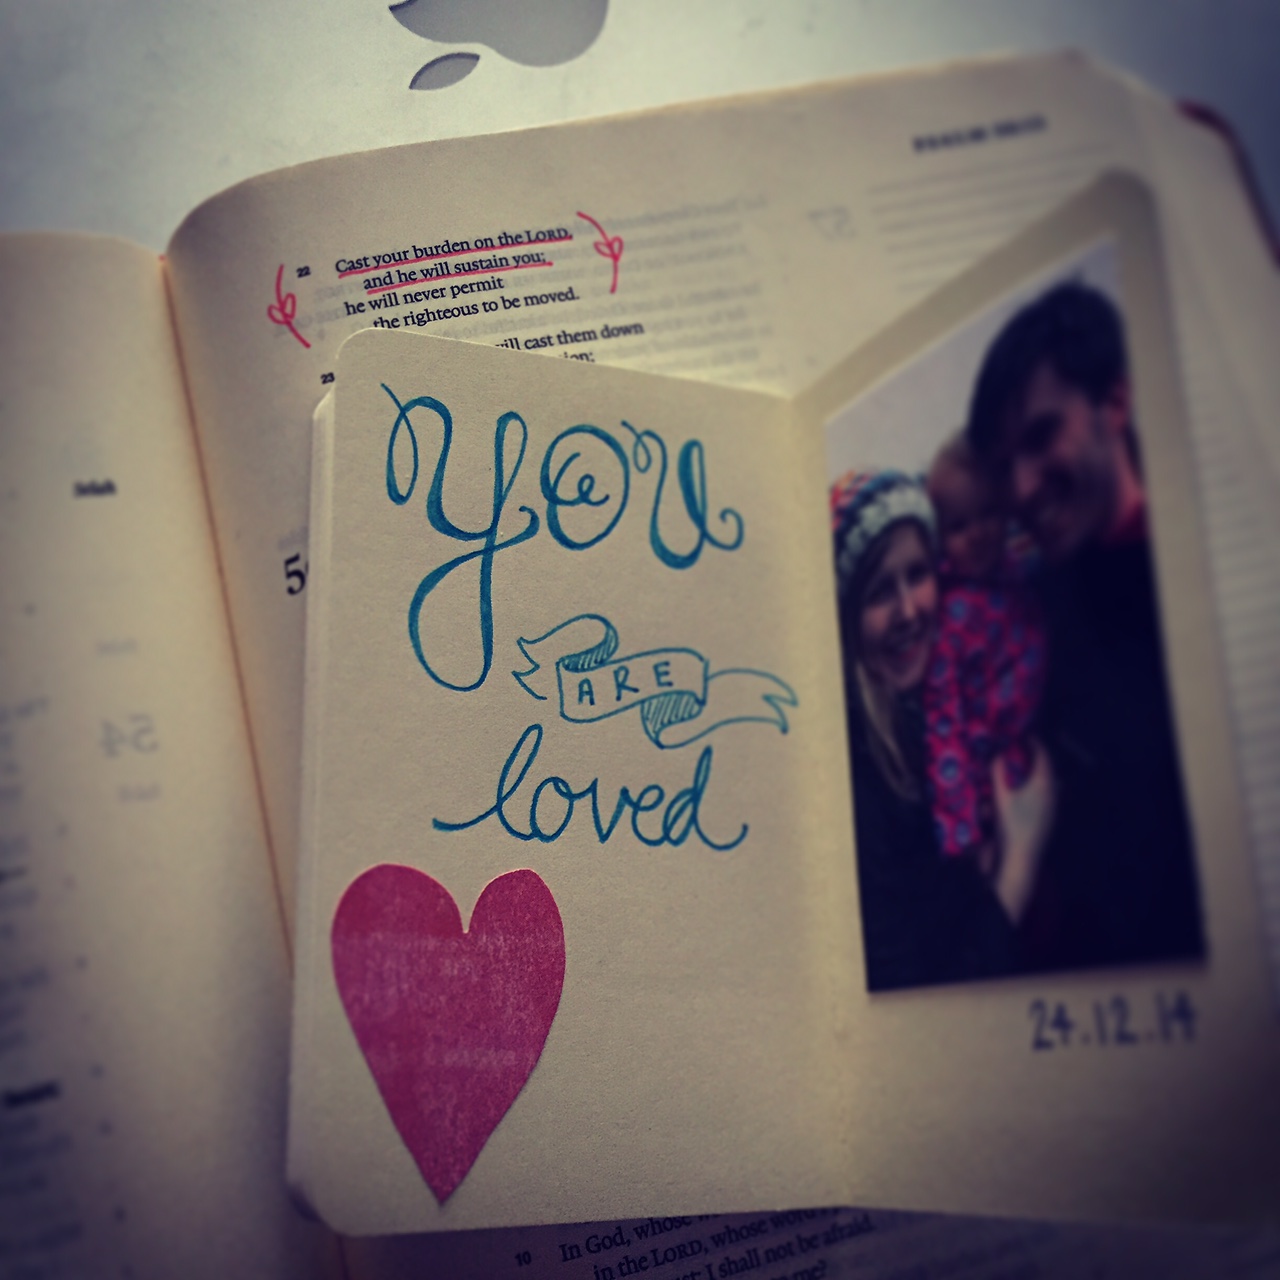 22 Cast your burden on the LORD,
and he will sustain you;
he will never permit
the righteous to be moved.
will cast them down
23
YOU
ARE
loved
24.12.14
10 In God, whose
in the LORD, whose word
I shall not be afraid.
me?